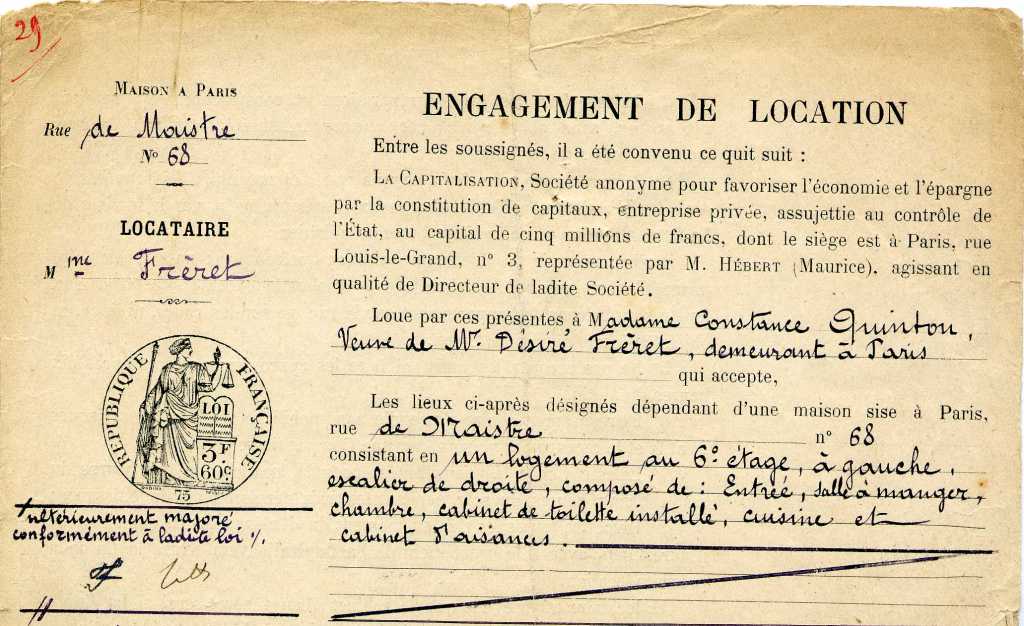 29
MAISON A PARIS
Rue de Maistre
N° 68
LOCATAIRE
M me Fréret
RÉPUBLIQUE FRANÇAISE
LOI
3F
60c
75
ultérieurement majoré
conformément à ladite loi %.
ENGAGEMENT DE LOCATION
Entre les soussignés, il a été convenu ce quit suit :
LA CAPITALISATION, Société anonyme pour favoriser l'économie et l'épargne
par la constitution de capitaux, entreprise privée, assujettie au contrôle de
l'État, au capital de cinq millions de francs, dont le siège est à Paris, rue
Louis-le-Grand, n° 3, représentée par M. HÉBERT (Maurice). agissant en
qualité de Directeur de ladite Société.
Loue par ces présentes à Madame Constance Quinton,
Veuve de Mr. Désiré Fréret, demeurant à Paris
qui accepte,
Les lieux ci-après désignés dépendant d'une maison sise à Paris,
rue de Maistre n° 68
consistant en un logement au 6e étage, à gauche,
escalier de droite, composé de : Entrée, salle à manger,
chambre, cabinet de toilette installé, cuisine et
cabinet d'aisances.